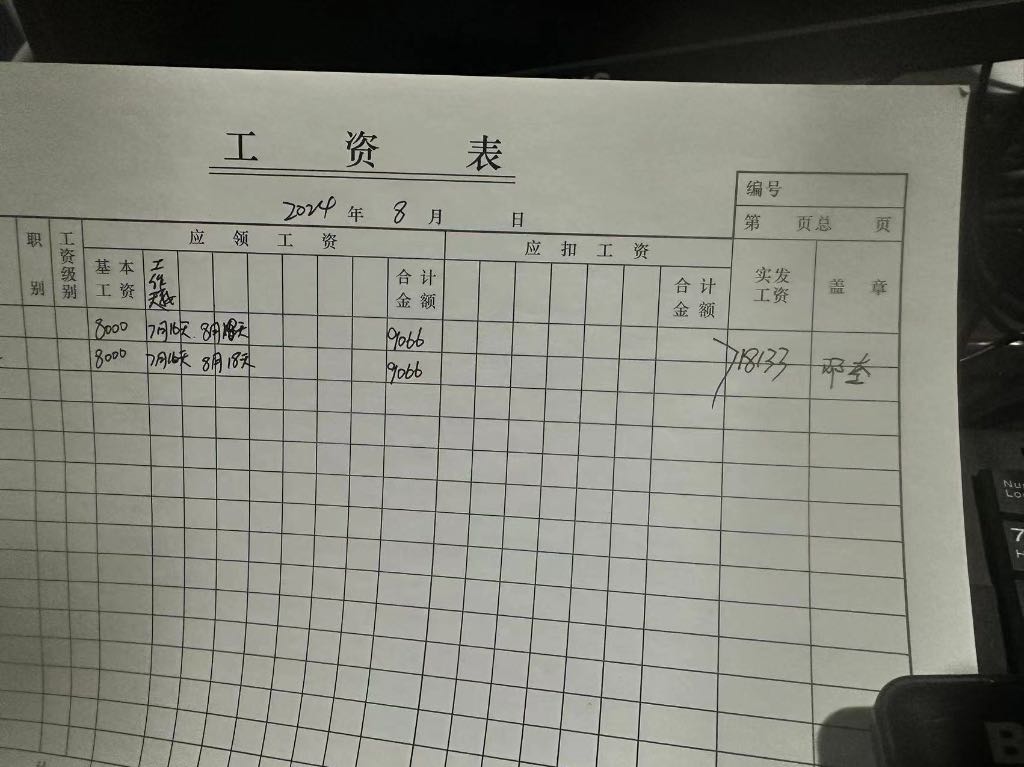 工 资 表
编号
2024 年 8 月 日
第 页总 页
职别 工资级别 应 领 工 资 应 扣 工 资 实发工资 盖 章
基本工资 工作天数 合计金额 合计金额
8000 7月16天 8月18天 9066
8000 7月16天 8月18天 9066 18133
Num
Loc
7
H
B